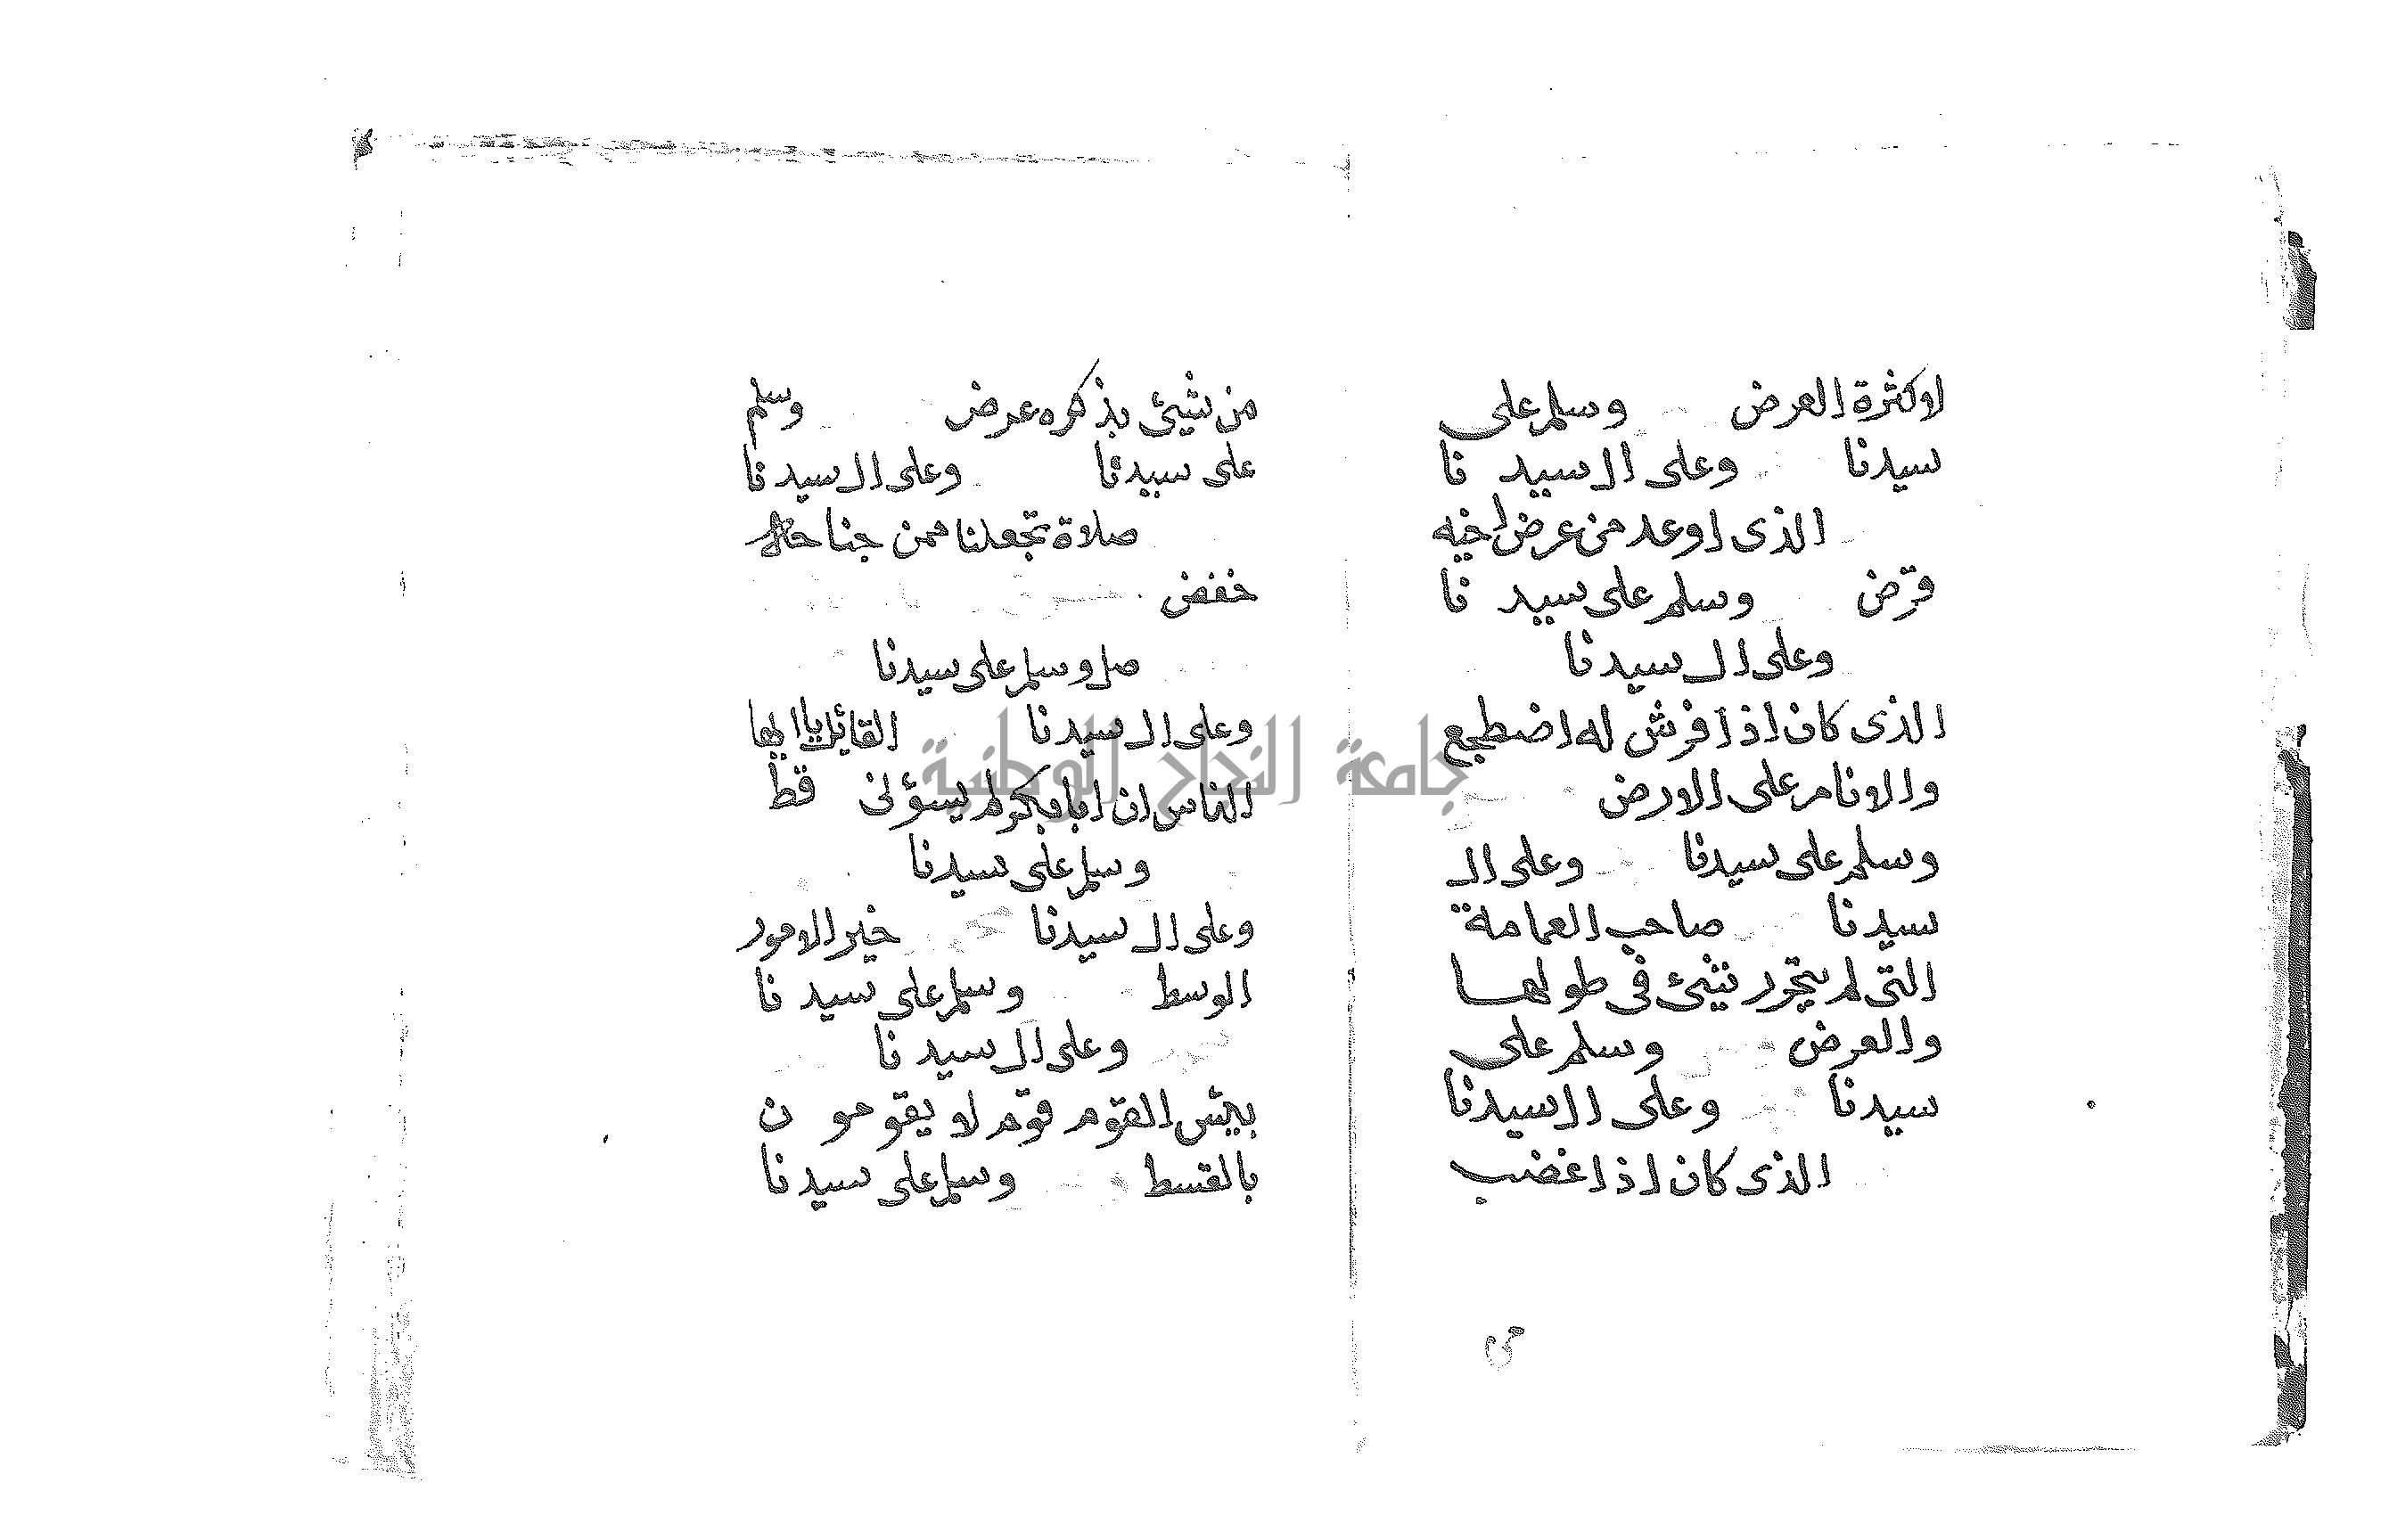 لاكثرة العرض وسلم على
سيدنا وعلى ال سيد نا
الذى اوعد من عرض اخيه
قرض وسلم على سيد نا
وعلى ال سيدنا
الذى كان اذا فرش له اضطجع
والا نام على الارض
وسلم على سيدنا وعلى ال
سيدنا صاحب العمامة
التى لم شيئ فى طولها
والعرض وسلم على
سيدنا وعلى ال سيدنا
الذى كان اذا غضب
من
من شيئ بذكره عرض وسلم
على سيدنا وعلى ال سيدنا
صلاة تجعلنا ممن جناحاه
خفض
صل وسلم على سيدنا
وعلى ال سيدنا القايل يا ايها
الناس ان ابا بكر لم يسؤنى قط
وسلم على سيدنا
وعلى ال سيدنا خير الامور
الوسط وسلم على سيد نا
وعلى ال سيد نا
بيئس القوم قوم لا يقومو ن
بالقسط وسلم على سيد نا
جامعة النجاح الوطنية